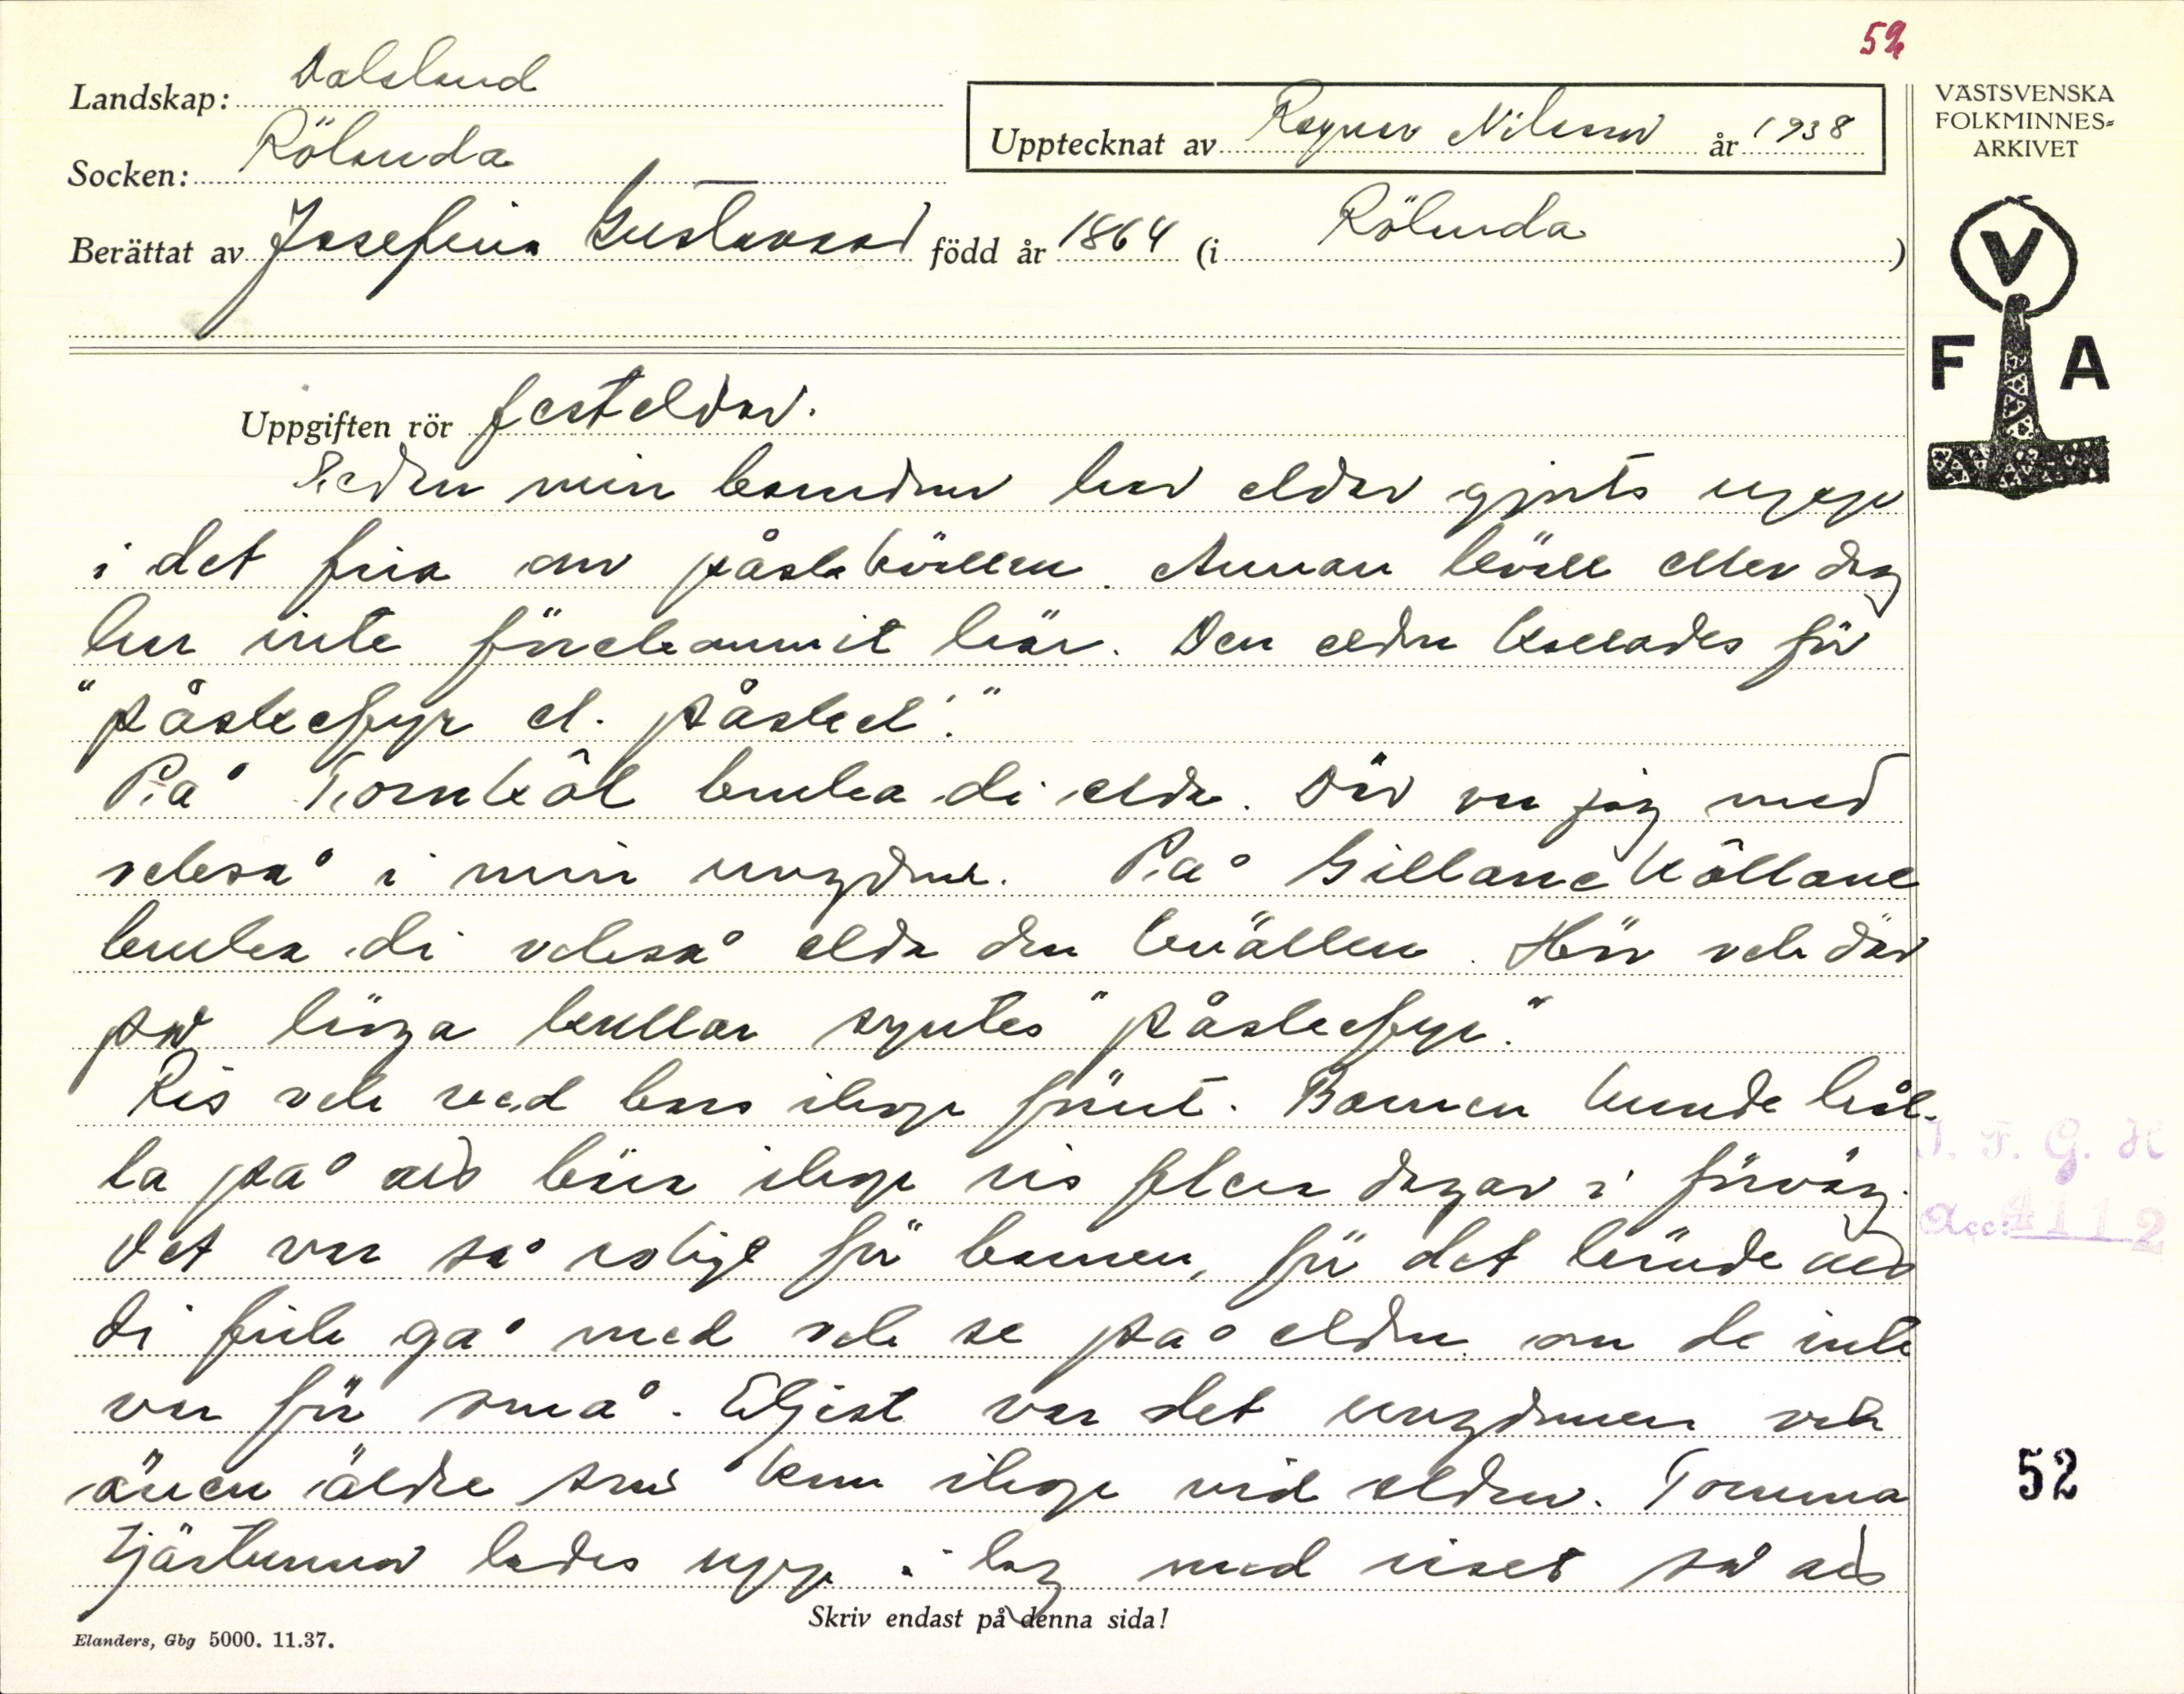 52
Landskap: Dalsland
Socken: Rölanda
Upptecknat av Ragnar Nilsson år 1938
Berättat av Josefina Gustavsson född år 1864 (i Rölanda)
VÄSTSVENSKA
FOLKMINNES-
ARKIVET
V
F A
Uppgiften rör festeldar.
Sedan min barndom har eldar gjorts upp
i det fria om påskkvällen. Annan kväll eller dag
har inte förekommit här. Den elden kallades för
"påskefyr el. påskel".
På Kornkôl bruka di elda. Där va jag med
också i min ungdom. På Gillane kôllane
bruka di också elda den kvällen. Här och där
på höga kullar syntes "påskefyr."
Ris och ved bars ihop först. Barnen kunde hål-
la på att bära ihop ris flera dagar i förväg.
Det var så roligt för barnen, för det hände att
di fick gå med och se på elden om de inte
var för små. Eljest var det ungdomen och
även äldre som kom ihop vid elden. Tomma
tjärtunnor lades upp i lag med riset så att
Skriv endast på denna sida!
Elanders, Gbg 5000. 11.37.
I. F. G. H
Acc: 4112
52